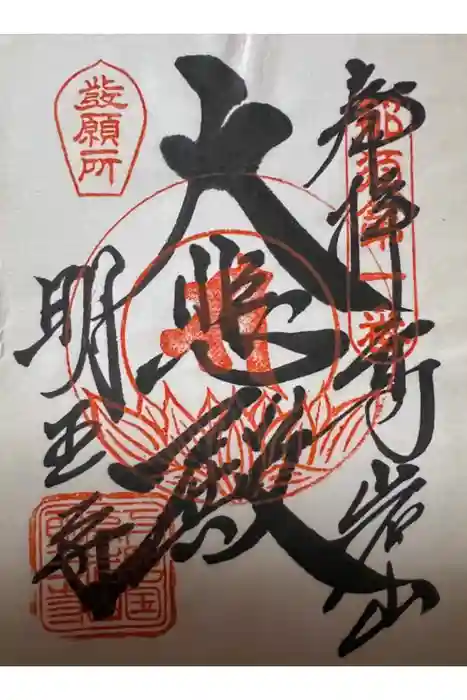 發願所
那須第一番
奉拝
岩山
大悲殿
明王寺